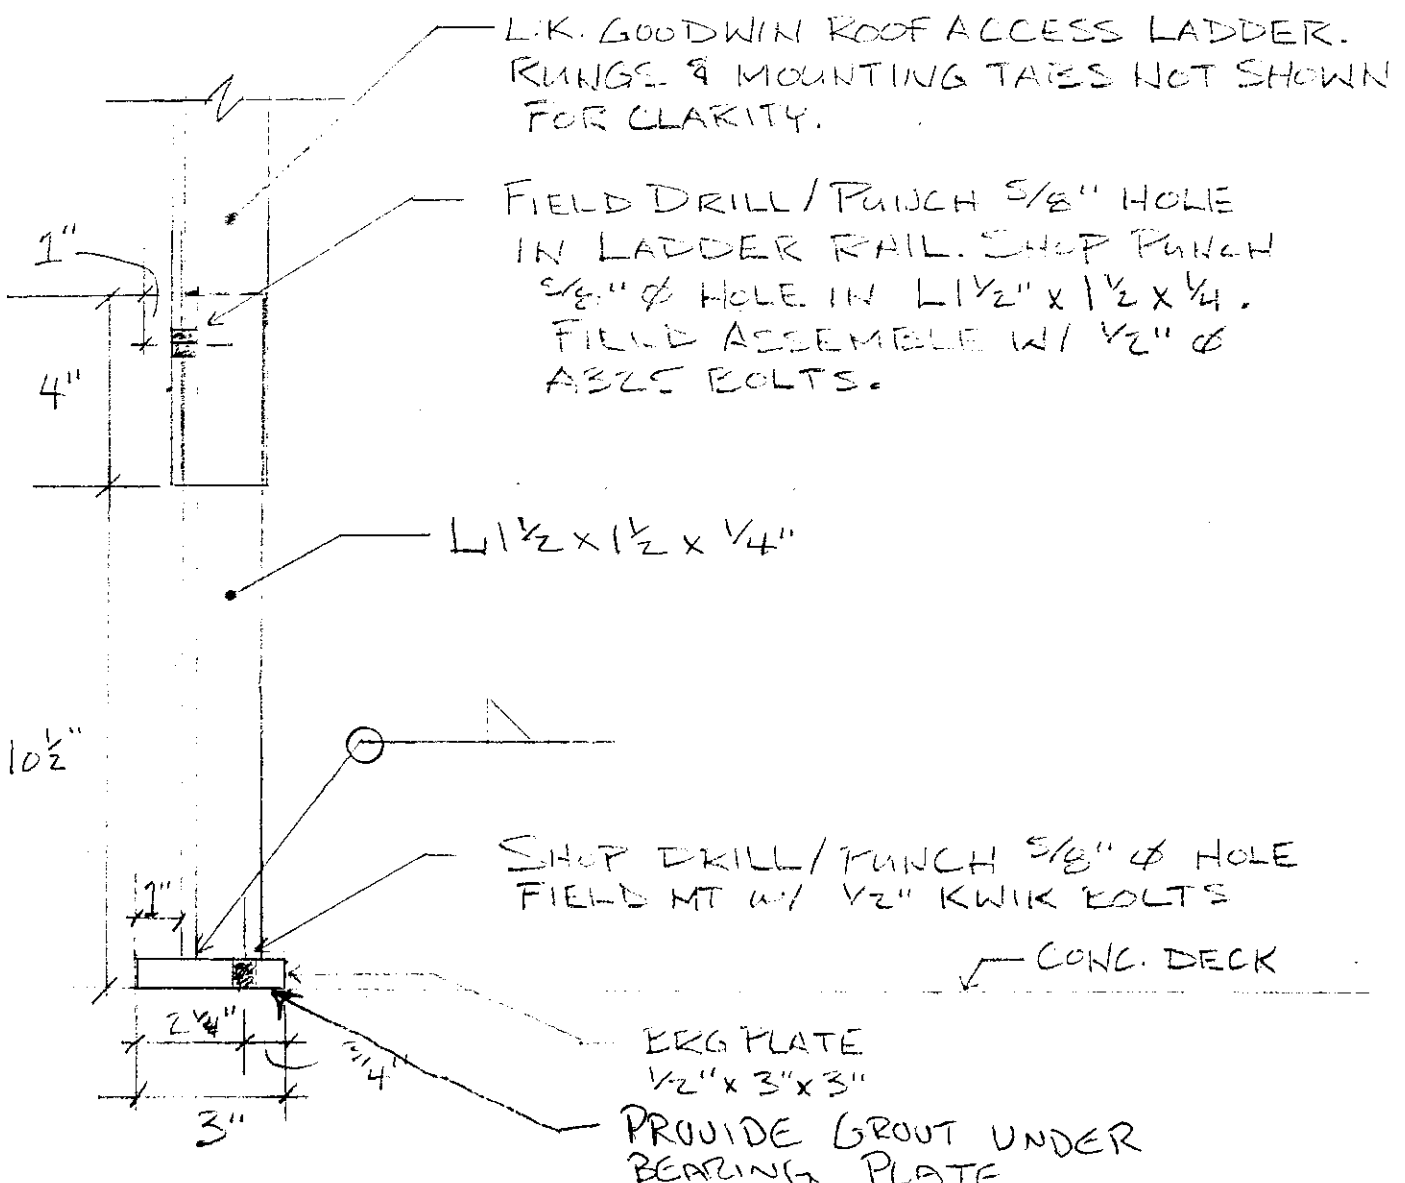 L.K. GOODWIN ROOF ACCESS LADDER.
RUNGS & MOUNTING TABS NOT SHOWN
FOR CLARITY.
FIELD DRILL/PUNCH 5/8" HOLE
IN LADDER RAIL. SHOP PUNCH
5/8" Ø HOLE IN L1½" x 1½ x ¼.
FIELD ASSEMBLE W/ ½" Ø
A325 BOLTS.
1"
4"
L1½ x 1½ x ¼"
10½"
SHOP DRILL/PUNCH 5/8" Ø HOLE
FIELD MT W/ ½" KWIK BOLTS
1"
CONC. DECK
2¼"
3/4"
BRG PLATE
½" x 3" x 3"
3"
PROVIDE GROUT UNDER
BEARING PLATE